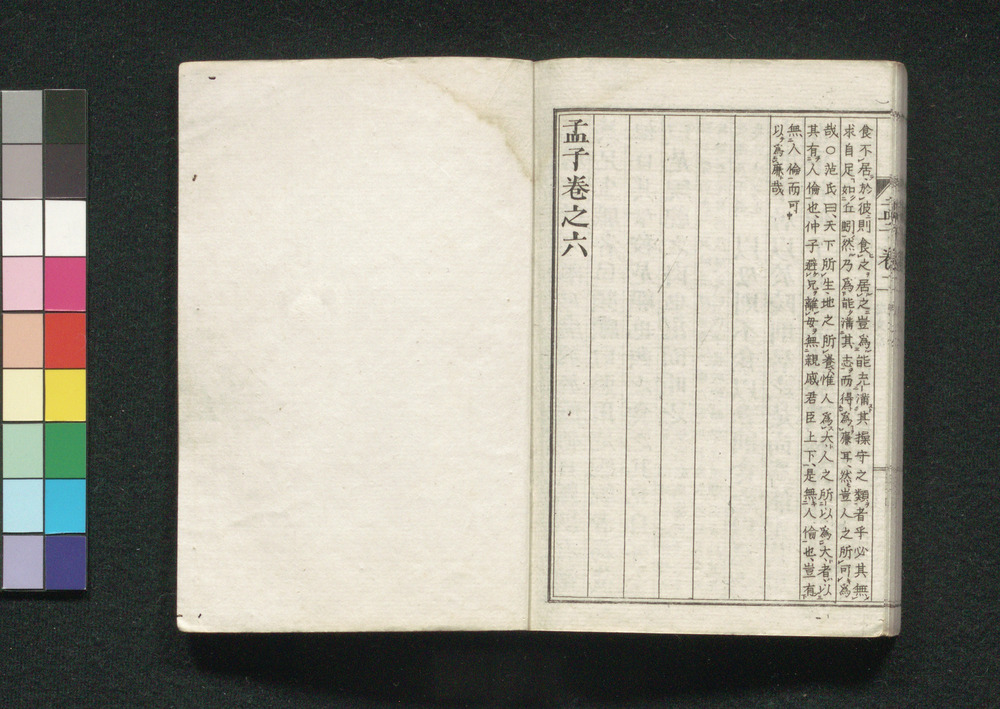 食不居於彼則食之居之豈為能充滿其操守之類者乎必其無
求自足如丘蚓然乃為能滿其志而得為廉耳然豈人之所可為
哉○范氏曰天下所生地之所養惟人為大人之所以為大者以
其有人倫也仲子避兄離母無親戚君臣上下是無人倫也豈有
無人倫而可
以為廉哉
孟子卷之六